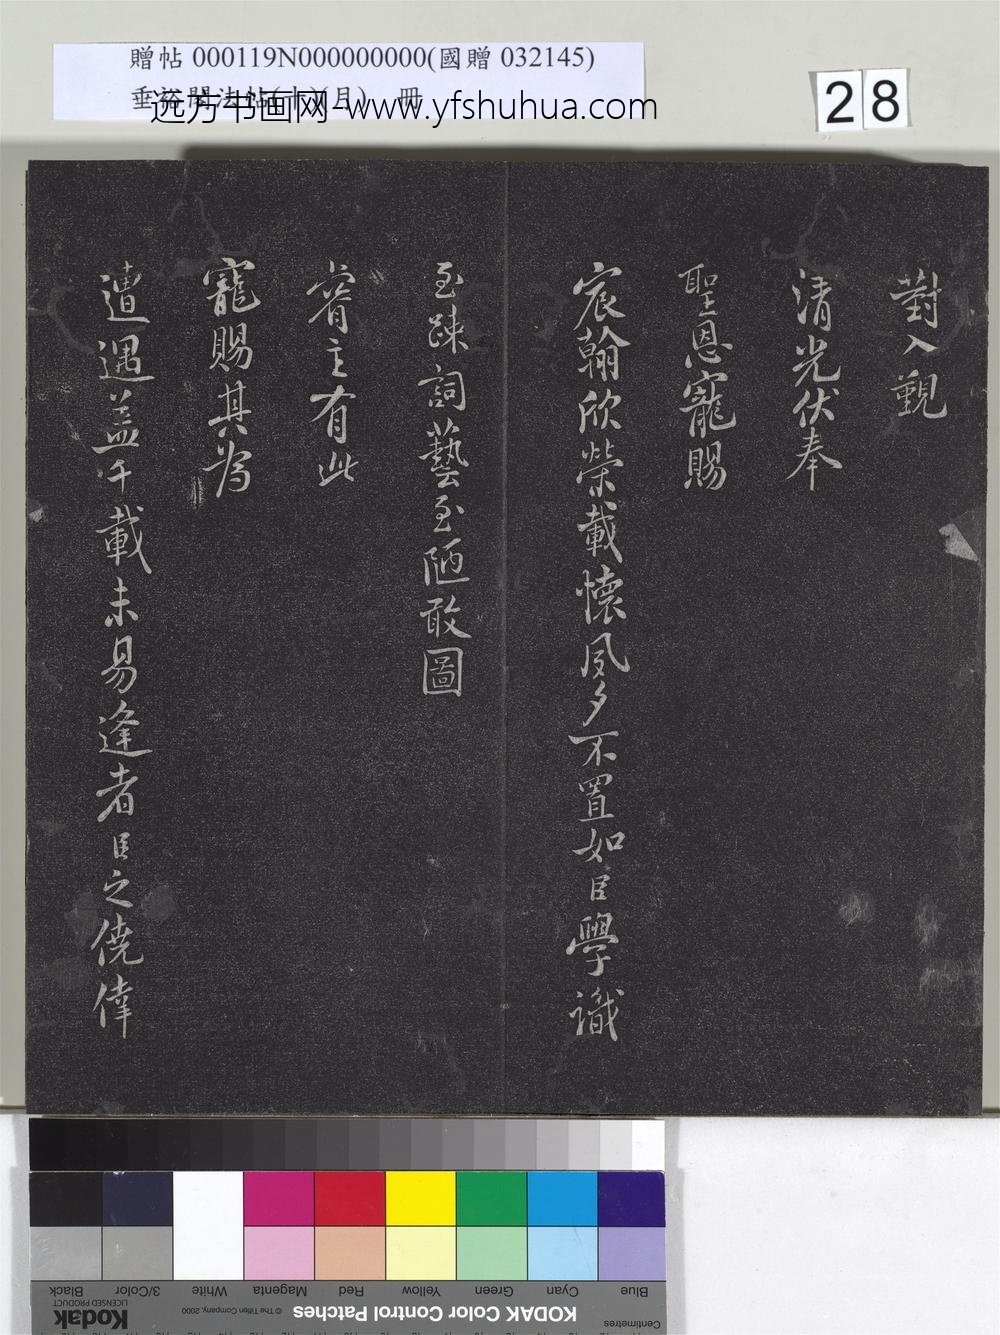 贈帖 000119N000000000(國贈 032145)
远方书画网-www.yfshuhua.com
28
對入覲
清光伏奉
聖恩寵賜
宸翰欣榮載懷夙夕不置如臣學識
至踈詞藝至陋敢圖
睿主有此
寵賜其為
遭遇盖千載未易逢者臣之僥倖
Black 3/Color White Magenta Red Yellow Green Cyan Blue
Kodak LICENSED PRODUCT © The Tiffen Company, 2000 KODAK Color Control Patches Centimetres